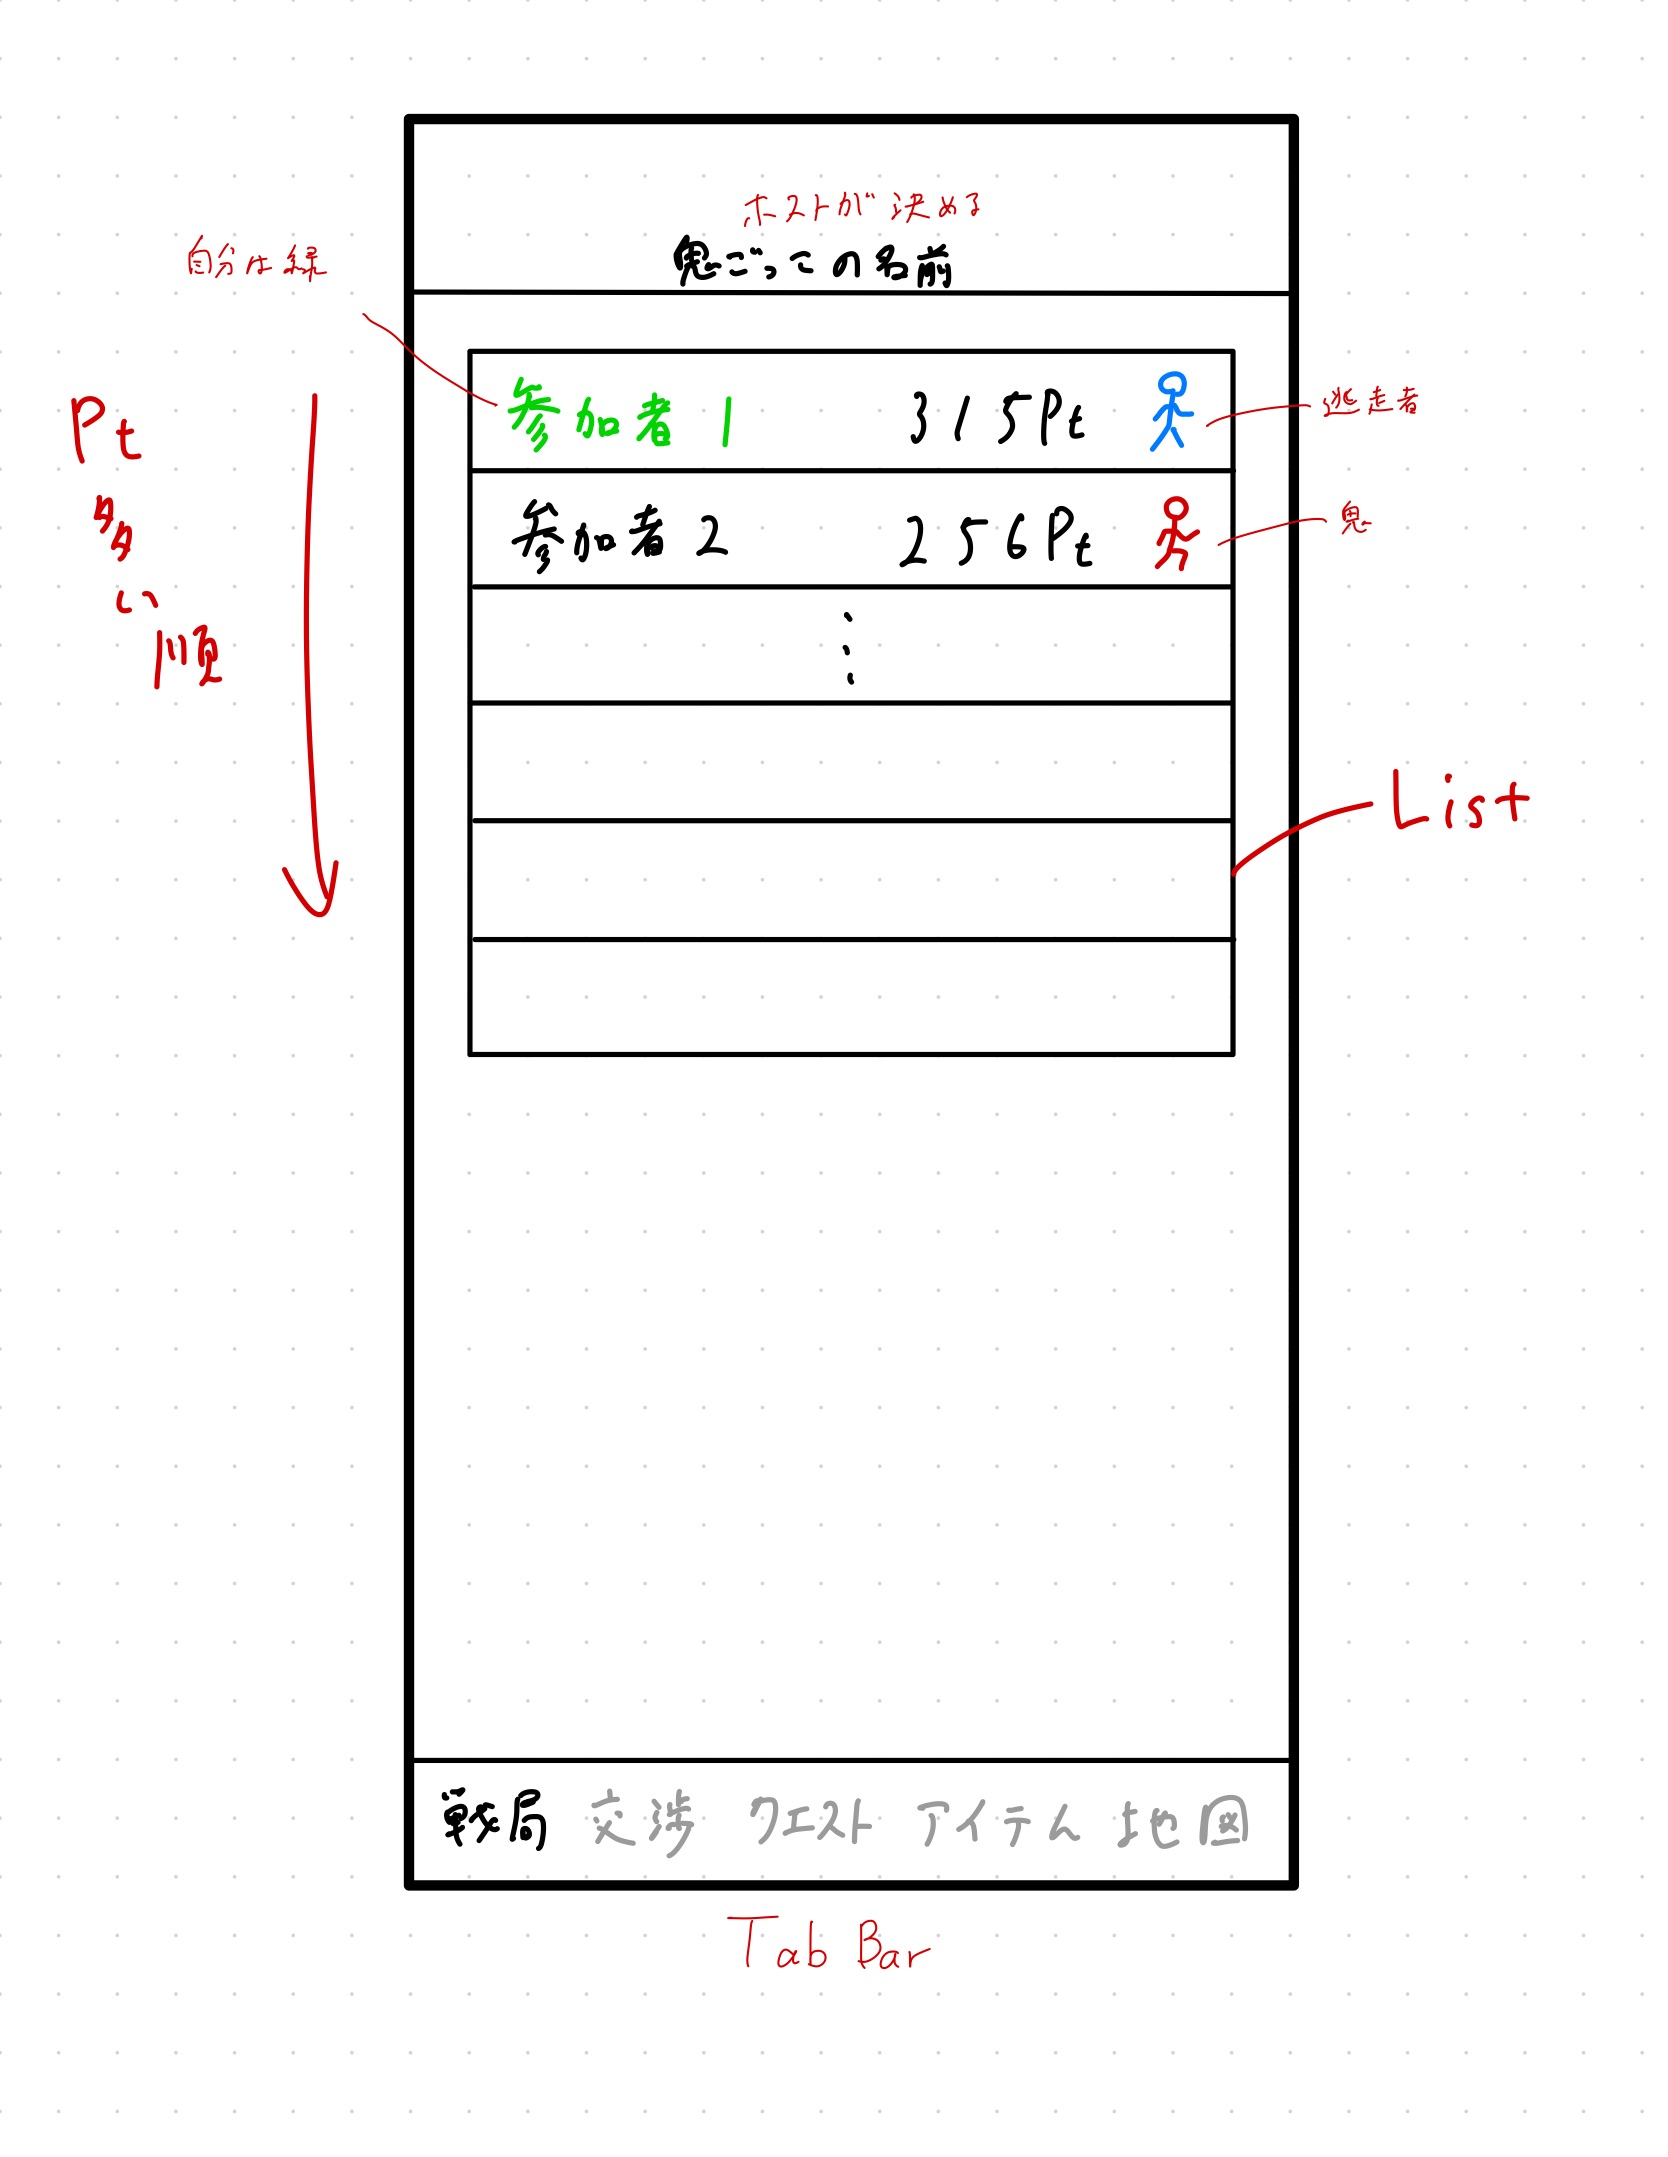 ホストが決める
鬼ごっこの名前
自分は緑
参加者1 315Pt
逃走者
参加者2 256Pt
鬼
Pt
多
い
順
List
戦局 交渉 クエスト アイテム 地図
Tab Bar